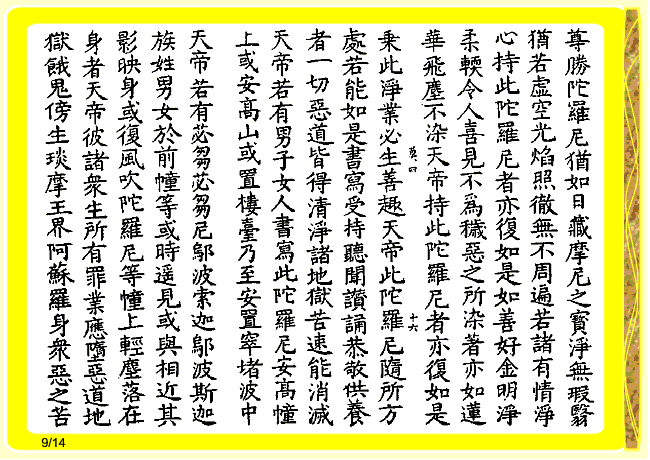 尊勝陀羅尼猶如日藏摩尼之寳淨無瑕翳
猶若虛空光焰照徹無不周遍若諸有情淨
心持此陀羅尼者亦復如是如善好金明淨
柔軟令人喜見不爲穢惡之所染著亦如蓮
華飛塵不染天帝持此陀羅尼者亦復如是
乘此淨業必生善趣天帝此陀羅尼隨所方
處若能如是書寫受持聽聞讚誦恭敬供養
者一切惡道皆得清淨諸地獄苦速能消滅
天帝若有男子女人書寫此陀羅尼安髙幢
上或安髙山或置樓臺乃至安置窣堵波中
天帝若有苾芻苾芻尼鄔波索迦鄔波斯迦
族姓男女於前幢等或時遥見或與相近其
影映身或復風吹陀羅尼等幢上輕塵落在
身者天帝彼諸衆生所有罪業應墮惡道地
獄餓鬼傍生琰摩王界阿蘇羅身衆惡之苦
十六
9/14